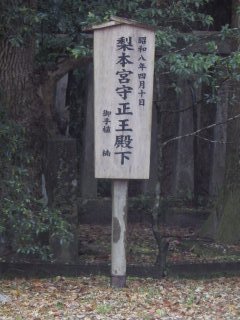 昭和八年四月十日
梨本宮守正王殿下
御手植 楠